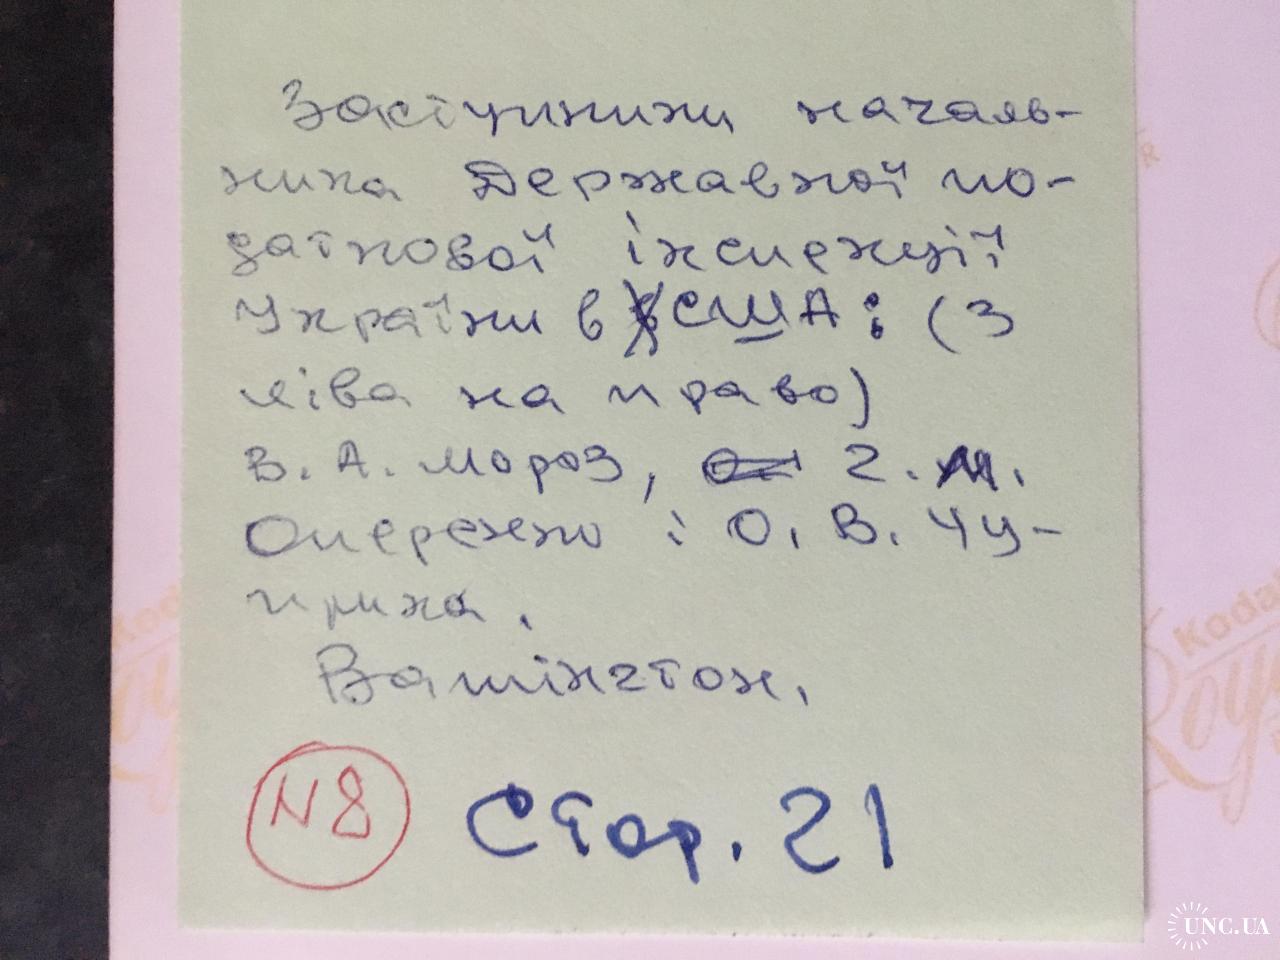 Заступники началь-
ника Державної по-
даткової інспекції
України в США: (з
ліва на право)
В. А. Мороз, Г. М.
Оперенко і О. В. Чу-
прина.
Вашінгтон,
N8 Стор. 21
Kodak
Royal
UNC.UA